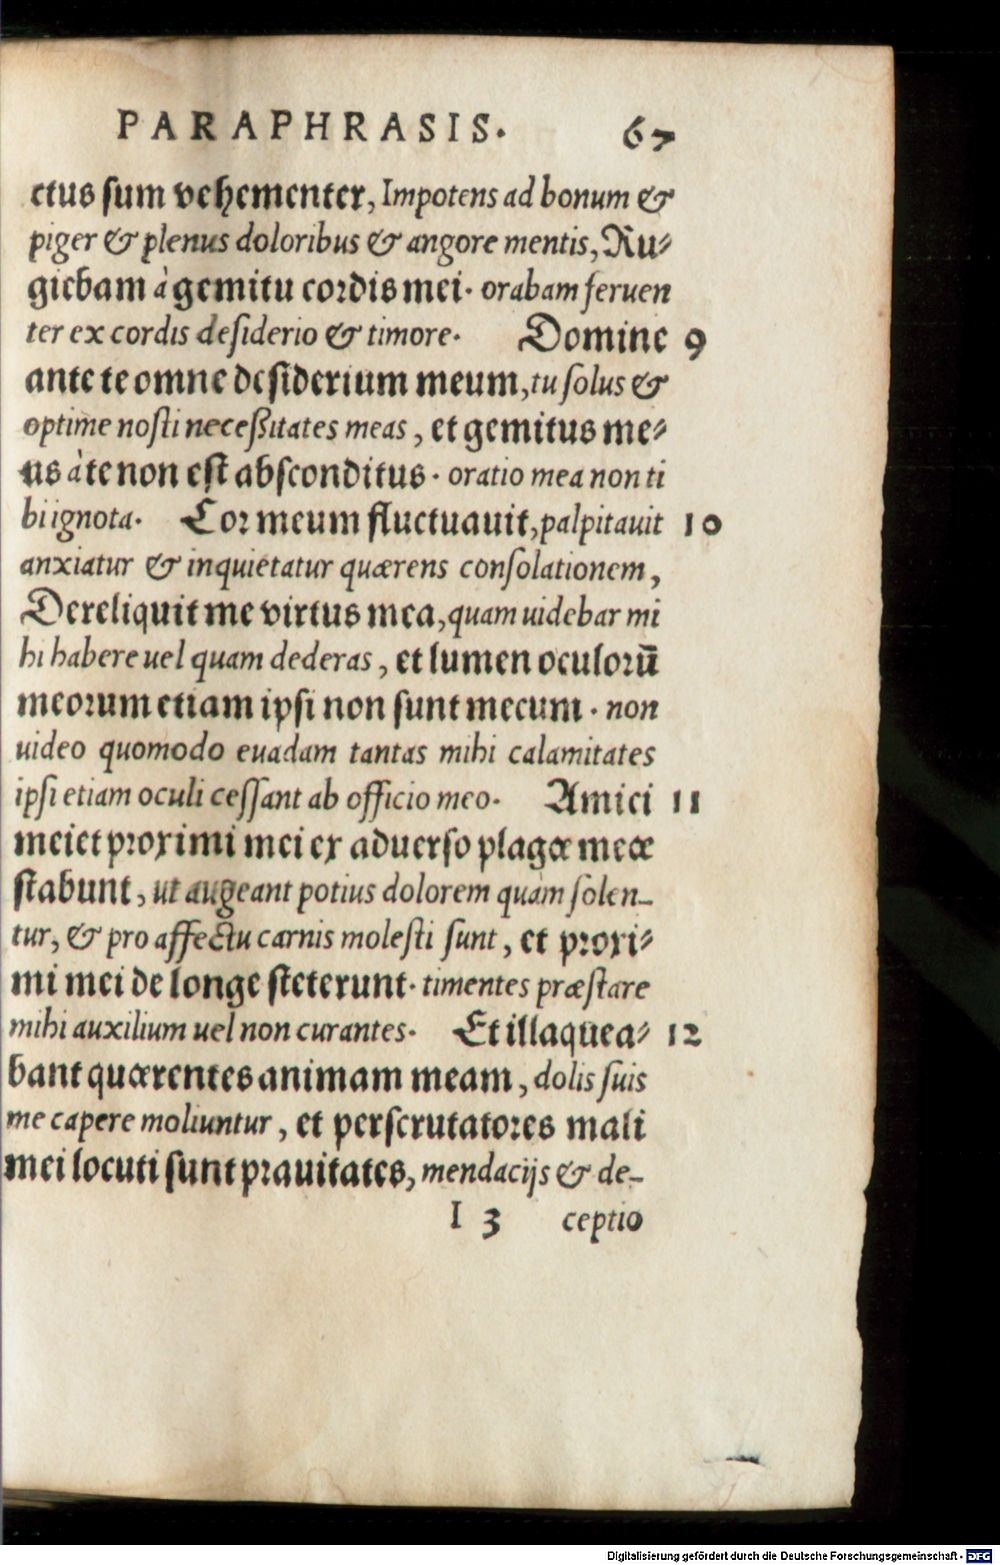 PARAPHRASIS. 67
ctus sum vehementer, Impotens ad bonum &
piger & plenus doloribus & angore mentis, Ru⸗
giebam à gemitu cordis mei. orabam feruen
ter ex cordis desiderio & timore. Domine 9
ante te omne desiderium meum, tu solus &
optime nosti neceßitates meas, et gemitus me⸗
us à te non est absconditus. oratio mea non ti
bi ignota. Cor meum fluctuauit, palpitauit 10
anxiatur & inquietatur quærens consolationem,
Dereliquit me virtus mea, quam uidebar mi
hi habere uel quam dederas, et lumen oculorū
meorum etiam ipsi non sunt mecum. non
uideo quomodo euadam tantas mihi calamitates
ipsi etiam oculi cessant ab officio meo. Amici 11
mei et proximi mei ex aduerso plagæ meæ
stabunt, ut augeant potius dolorem quàm solen-
tur, & pro affectu carnis molesti sunt, et proxi⸗
mi mei de longe steterunt. timentes præstare
mihi auxilium uel non curantes. Et illaquea⸗ 12
bant quærentes animam meam, dolis suis
me capere moliuntur, et perscrutatores mali
mei locuti sunt prauitates, mendacijs & de-
I 3 ceptio
Digitalisierung gefördert durch die Deutsche Forschungsgemeinschaft - DFG